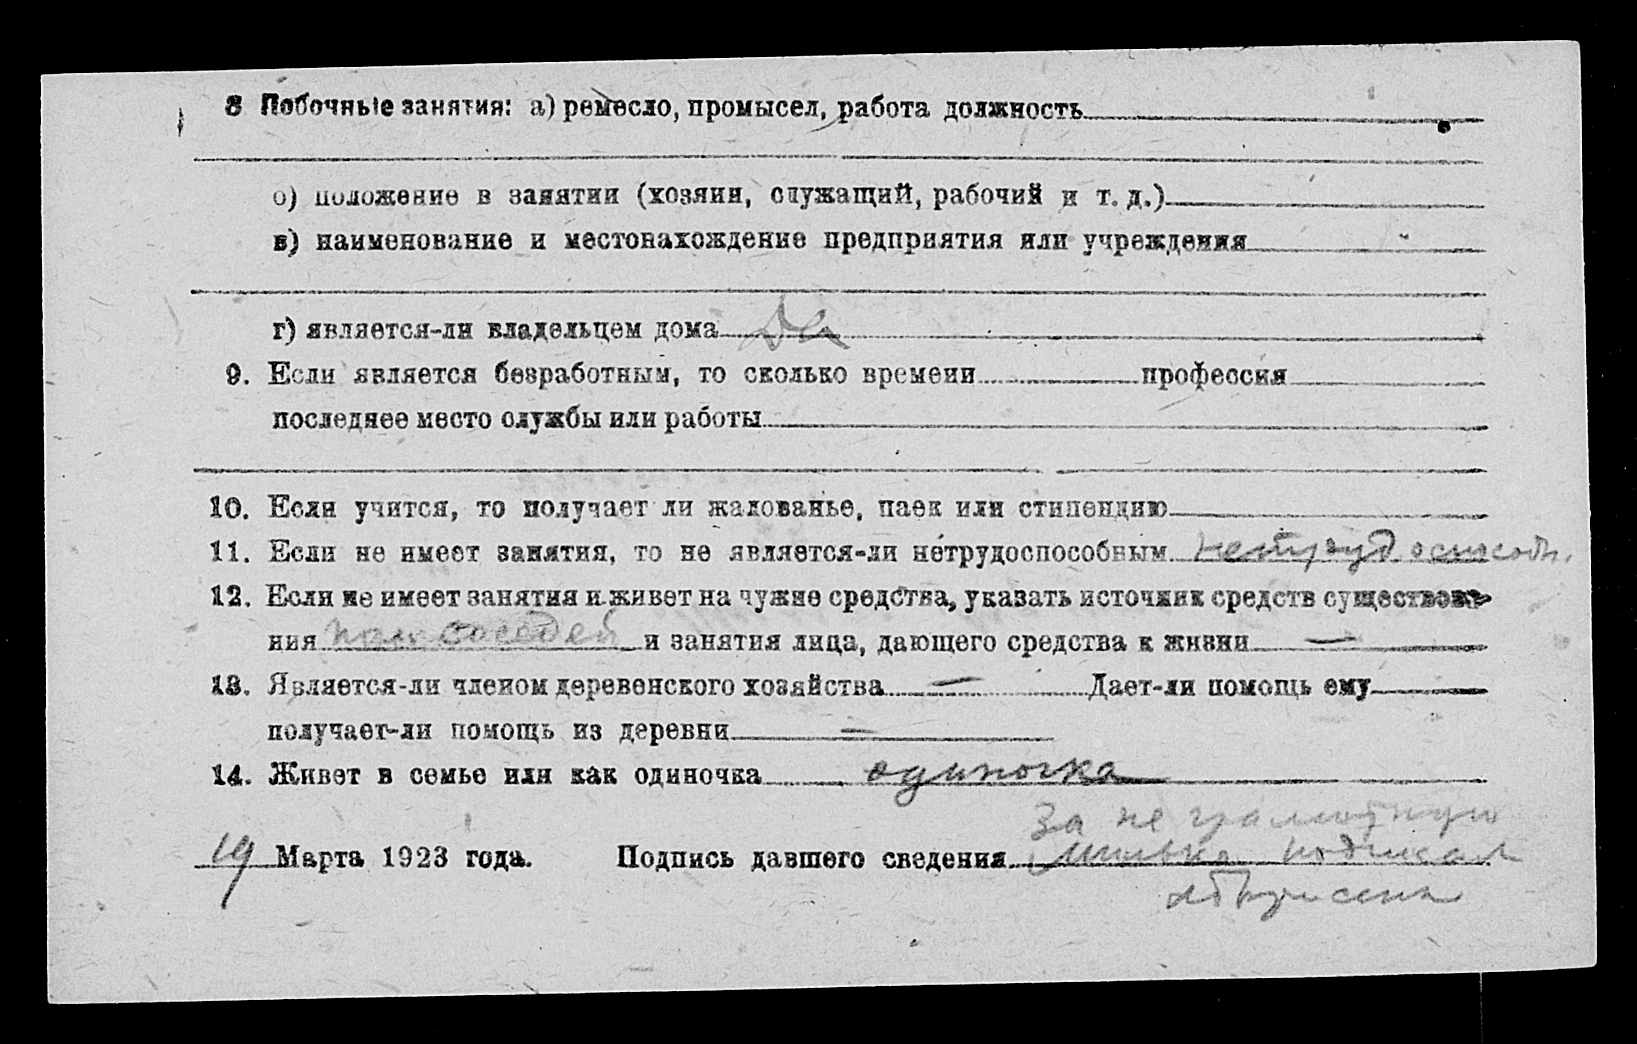 8 Побочные занятия: а) ремесло, промысел, работа должность
б) положение в занятии (хозяин, служащий, рабочий и т. д.)
в) наименование и местонахождение предприятия или учреждения
г) является-ли владельцем дома да
9. Если является безработным, то сколько времени профессия
последнее место службы или работы
10. Если учится, то получает ли жалованье, паек или стипендию
11. Если не имеет занятия, то не является-ли нетрудоспособным нетрудоспособн.
12. Если не имеет занятия и живет на чужие средства, указать источник средств существова-
ния пом соседей и занятия лица, дающего средства к жизни —
13. Является-ли членом деревенского хозяйства — Дает-ли помощь ему —
получает-ли помощь из деревни —
14. Живет в семье или как одиночка одиночка
За не грамотную
19 Марта 1923 года. Подпись давшего сведения подписал